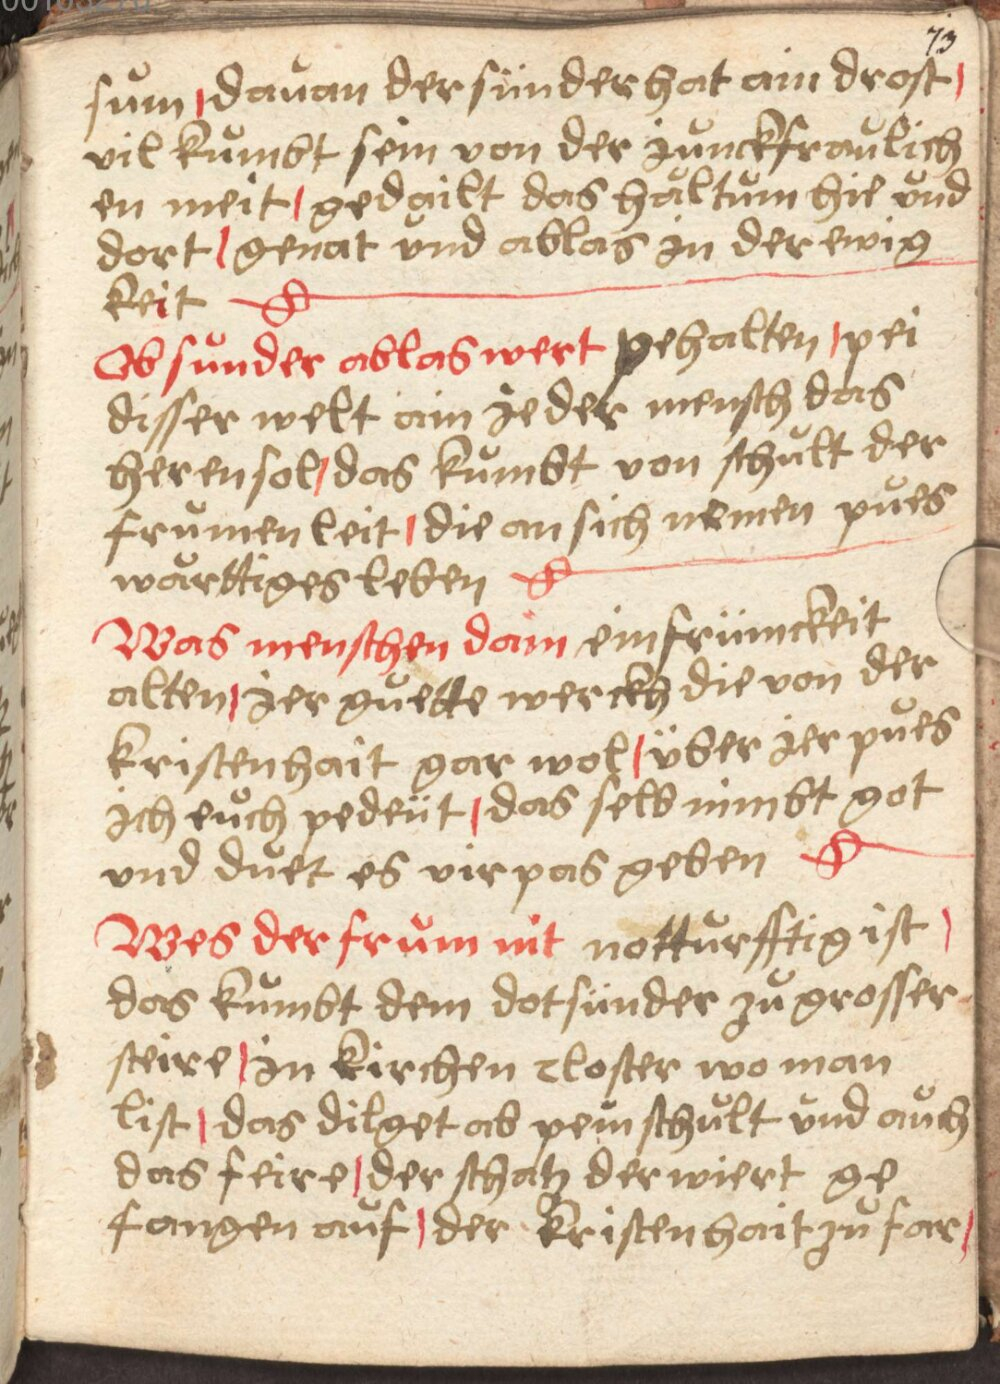 73
sum / davan der sünder hat ain drost /
vil kumbt sein von der junckfraulich
en meit / gedailt das hailtum hie und
dort / genat und ablas in der ewig
keit
Ob sunder ablas wert gehalten / pei
disser welt ain jeder mensch das
heren sol / das kumbt von schult der
frumen leit / die an sich nemen pues
wärttiges leben
Was menschen dain ein frümckeit
alten / jer guette werckh die von der
kristenhait gar wol / über jer pues
ich euch pedeüt / das selb nimbt got
und duet es vir pas geben
Wes der frum nit notturfftig ist /
das kumbt dem dotsünder zu grosser
steire / in kirchen closter wo man
list / das dilget ab pein schult und auch
das feire / der schatz der wiert ge
fangen auf / der kristenhait zu far /